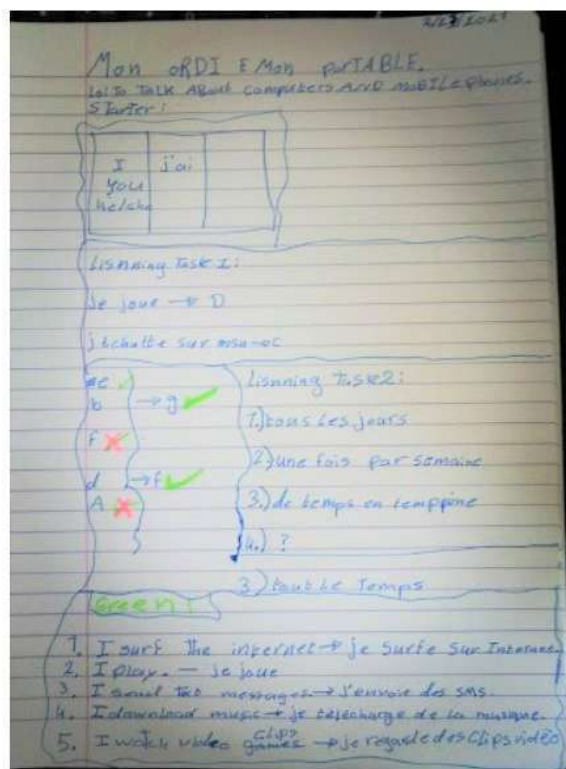 Mon oRDI E Mon porTABLE.
Lo: To Talk About computers AND mobile phones.
Starter:
I j'ai
You
he/she
Lisnning Task 1:
Je joue → D
j tchatte sur msn → c
e
b → g
f
d → f
A
Lisnning Task 2:
1.) tous les jours
2.) une fois par semaine
3.) de temps en temppine
4.) ?
3.) tout Le Temps
Green:
1. I surf The internet → je surfe sur Internet.
2. I play. — je joue
3. I send text messages → J'envoie des SMS.
4. I download music → je télécharge de la musique.
5. I watch video clips games → je regarde des clips vidéo